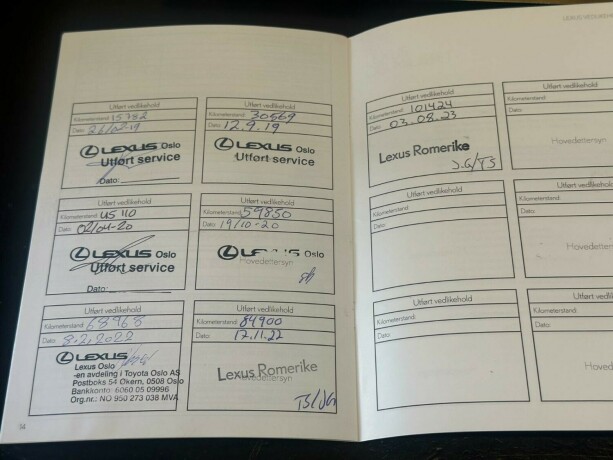 LEXUS VEDLIKEH
Utført vedlikehold
Kilometerstand: 15782
Dato: 26/02-19
LEXUS Oslo
Utført service
Dato:
Utført vedlikehold
Kilometerstand: 30569
Dato: 12.9.19
LEXUS Oslo
Utført service
Utført vedlikehold
Kilometerstand: 45 110
Dato: 02/04-20
LEXUS Oslo
Utført service
Dato:
Utført vedlikehold
Kilometerstand: 59850
Dato: 19/10-20
LEXUS Oslo
Hovedettersyn
Utført vedlikehold
Kilometerstand: 68968
Dato: 8.2.2022
LEXUS
Lexus Oslo
-en avdeling i Toyota Oslo AS
Postboks 54 Økern, 0508 Oslo
Bankkonto: 6060 05 09996
Org.nr.: NO 950 273 038 MVA
Utført vedlikehold
Kilometerstand: 84900
Dato: 17.11.22
Lexus Romerike
Hovedettersyn
TS/JG
54
Utført vedlikehold
Kilometerstand: 101424
Dato: 03.08.23
Lexus Romerike
J.G/TS
Utført vedlikehold
Kilometerstand:
Dato:
Utført vedlikehold
Kilometerstand:
Dato:
Utført ved
Kilometerstand:
Dato:
Hovedettersyn
Utført vedl
Kilometerstand:
Dato:
Hovedetters
Utført ved
Kilometerstand:
Dato:
Hovedet